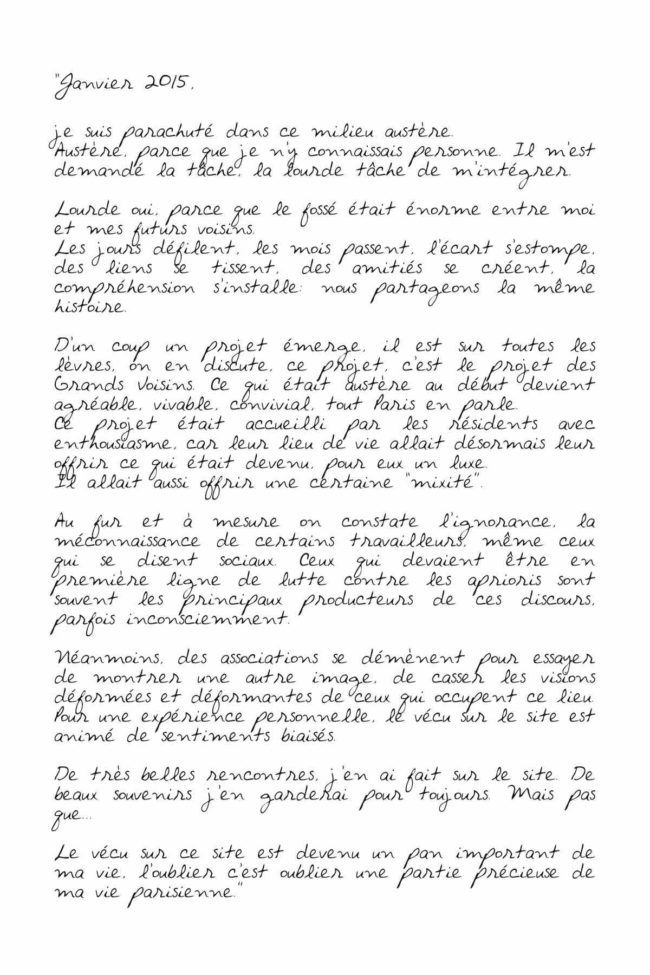 "Janvier 2015,
je suis parachuté dans ce milieu austère.
Austère, parce que je n'y connaissais personne. Il m'est
demandé la tâche, la lourde tâche de m'intégrer.
Lourde oui, parce que le fossé était énorme entre moi
et mes futurs voisins.
Les jours défilent, les mois passent, l'écart s'estompe,
des liens se tissent, des amitiés se créent, la
compréhension s'installe: nous partageons la même
histoire.
D'un coup un projet émerge, il est sur toutes les
lèvres, on en discute, ce projet, c'est le projet des
Grands Voisins. Ce qui était austère au début devient
agréable, vivable, convivial, tout Paris en parle.
Ce projet était accueilli par les résidents avec
enthousiasme, car leur lieu de vie allait désormais leur
offrir ce qui était devenu, pour eux un luxe.
Il allait aussi offrir une certaine "mixité".
Au fur et à mesure on constate l'ignorance, la
méconnaissance de certains travailleurs, même ceux
qui se disent sociaux. Ceux qui devaient être en
première ligne de lutte contre les aprioris sont
souvent les principaux producteurs de ces discours,
parfois inconsciemment.
Néanmoins, des associations se démènent pour essayer
de montrer une autre image, de casser les visions
déformées et déformantes de ceux qui occupent ce lieu.
Pour une expérience personnelle, le vécu sur le site est
animé de sentiments biaisés.
De très belles rencontres, j'en ai fait sur le site. De
beaux souvenirs j'en garderai pour toujours. Mais pas
que...
Le vécu sur ce site est devenu un pan important de
ma vie, l'oublier c'est oublier une partie précieuse de
ma vie parisienne."